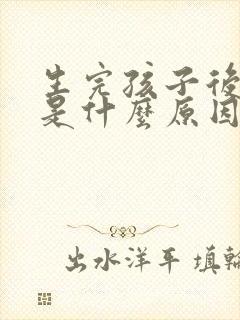 生完孩子後
是什麼原因
出水洋平 填輸